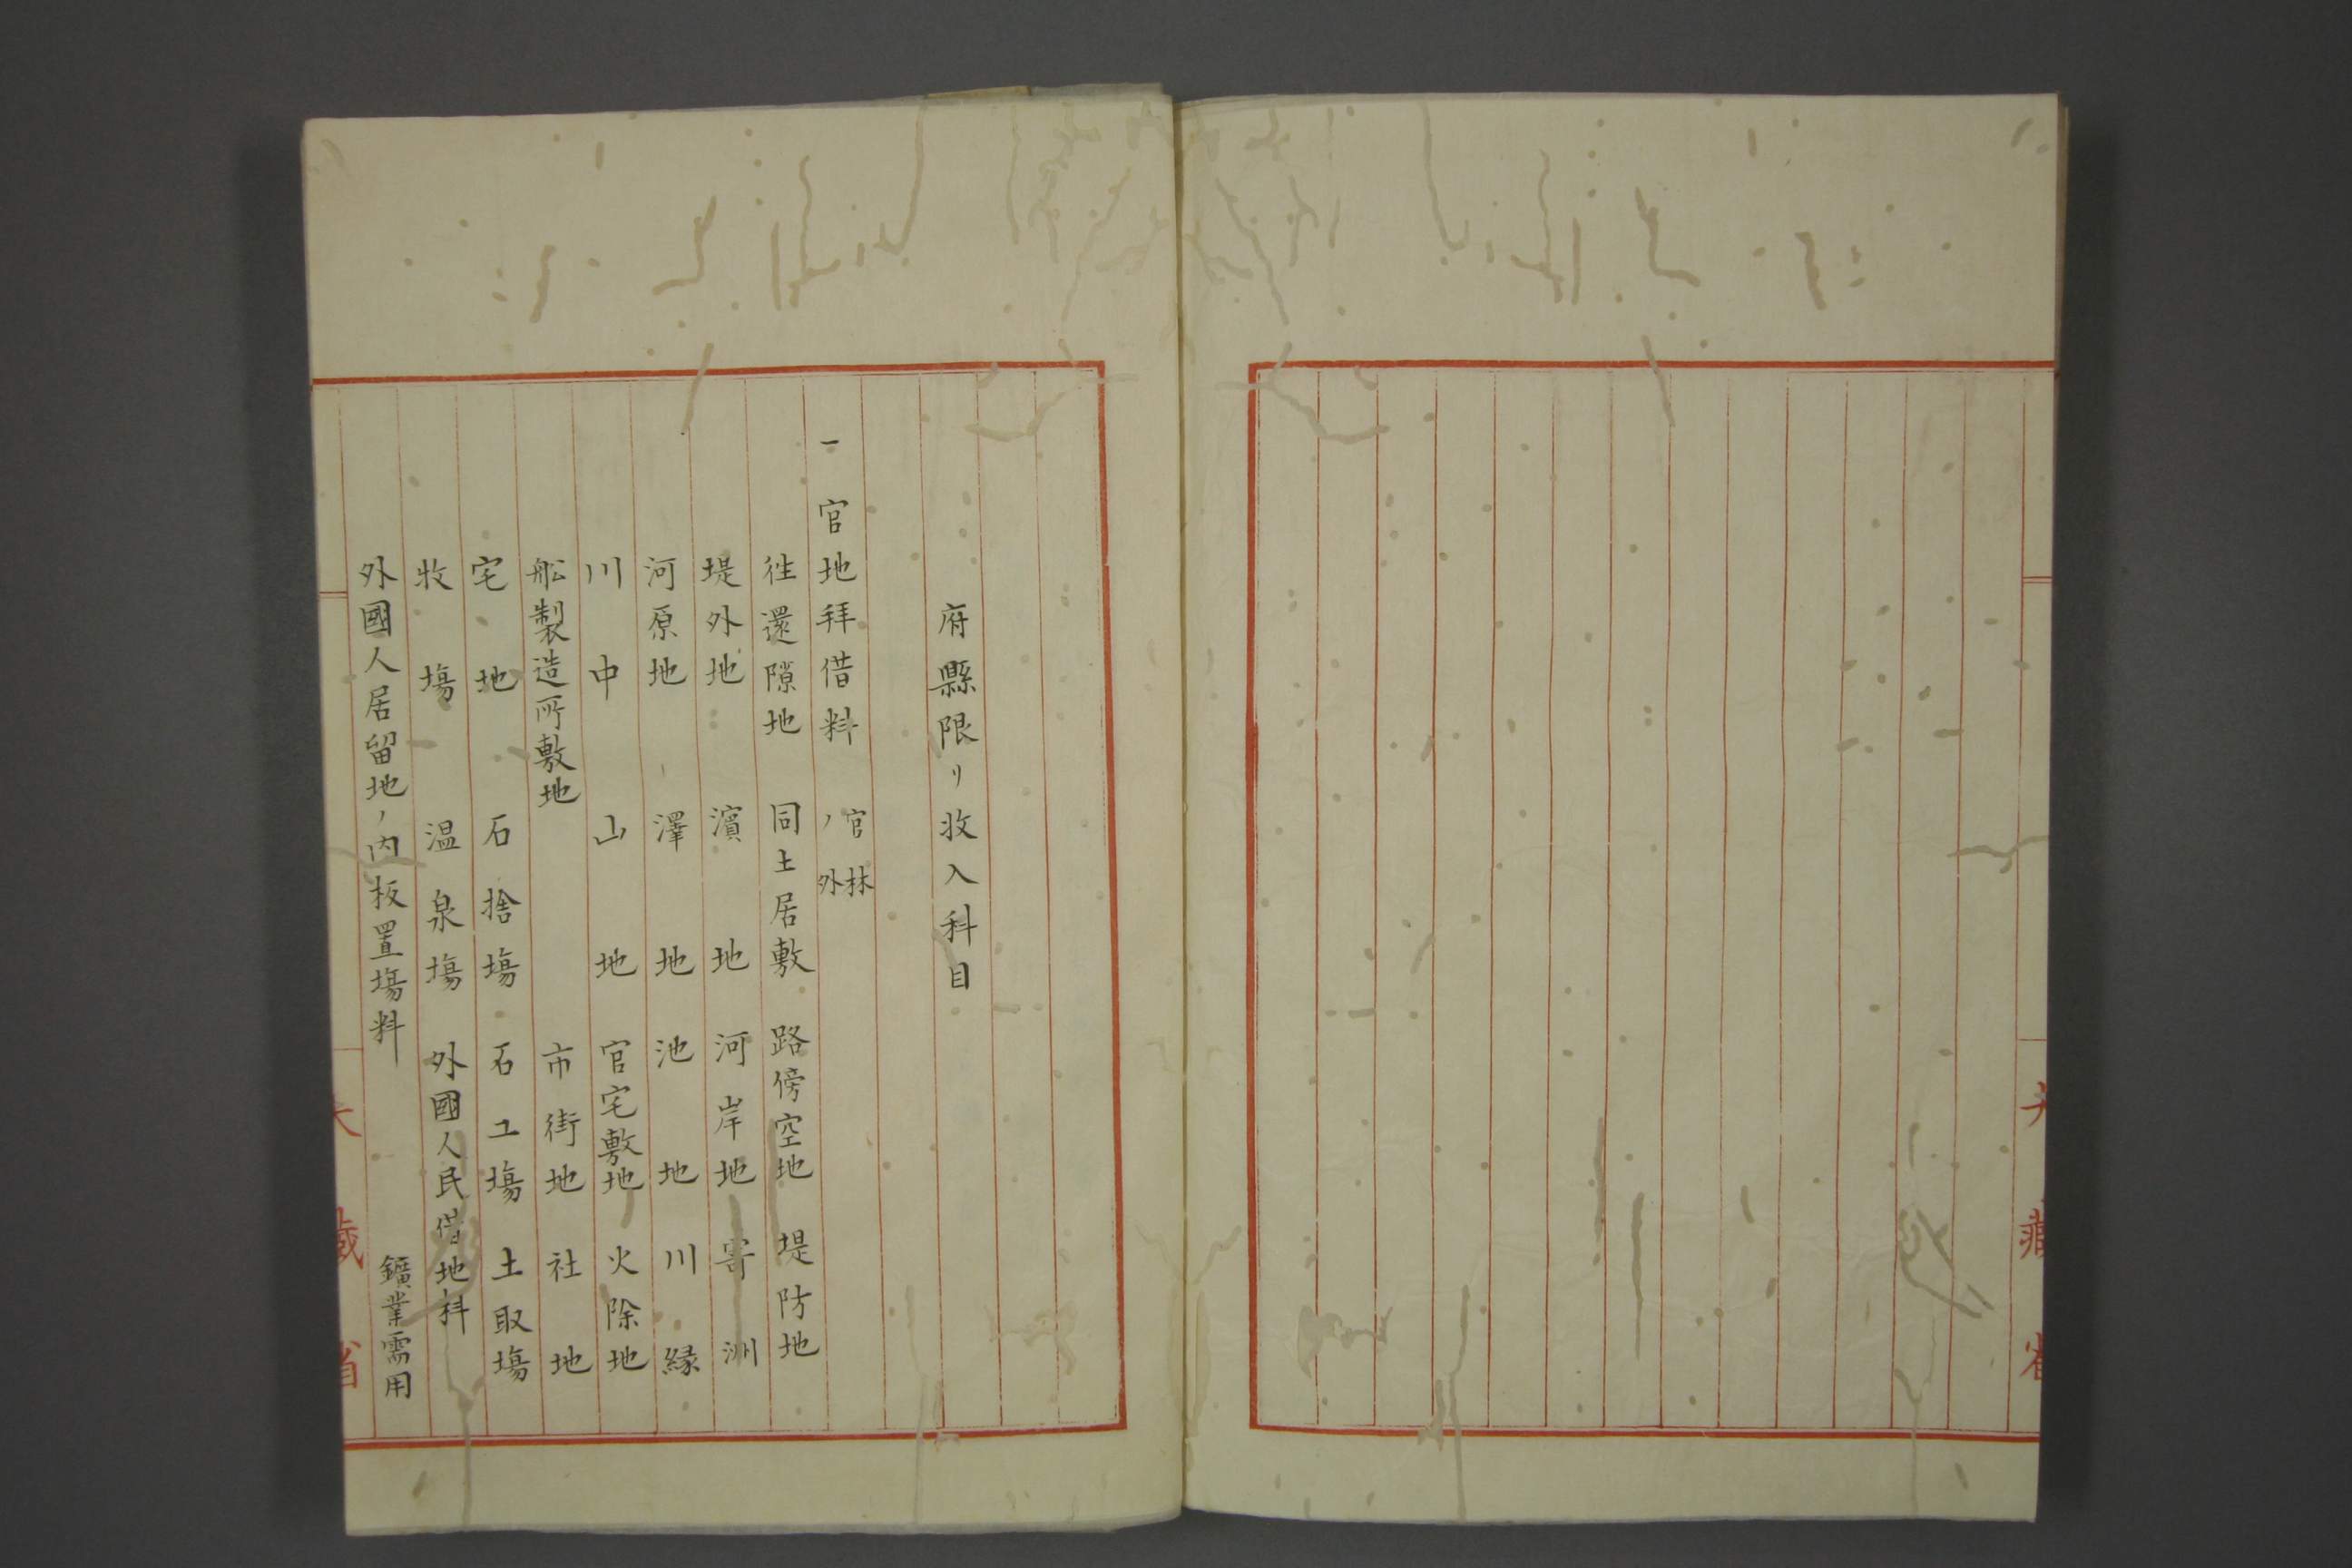 府縣限リ收入科目
一 官地拜借料 官林ノ外
徃還隙地 同土居敷 路傍空地 堤防地
堤外地 濱地 河岸地 寄洲
河原地 澤地 池地 川縁
川中 山地 官宅敷地 火除地
舩製造所敷地 市街地 社地
宅地 石捨塲 石工塲 土取塲
牧塲 温泉塲 外國人民借地料
外國人居留地ノ内板置塲料 鑛業需用
大藏省